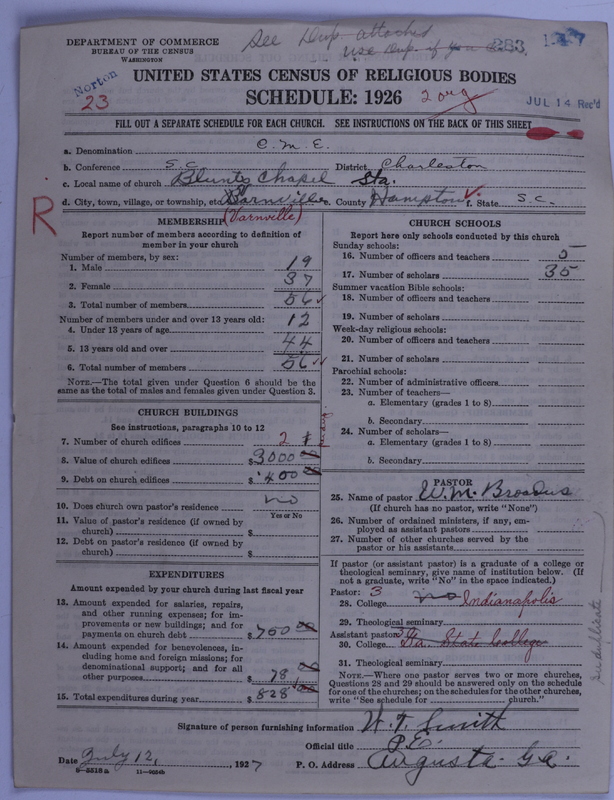 DEPARTMENT OF COMMERCE
BUREAU OF THE CENSUS
WASHINGTON
See Dup. attached
Use Dup.
Norton
23
UNITED STATES CENSUS OF RELIGIOUS BODIES
SCHEDULE: 1926
2 org
JUL 14 Rec'd
FILL OUT A SEPARATE SCHEDULE FOR EACH CHURCH. SEE INSTRUCTIONS ON THE BACK OF THIS SHEET
a. Denomination C. M. E.
b. Conference S.C. District Charleston
c. Local name of church Blunts Chapel Sta.
d. City, town, village, or township, etc. Varnville e. County Hampton f. State S. C.
R
(Varnville)
MEMBERSHIP
Report number of members according to definition of
member in your church
Number of members, by sex:
1. Male 19
2. Female 37
3. Total number of members 56
Number of members under and over 13 years old:
4. Under 13 years of age 12
5. 13 years old and over 44
6. Total number of members 56
NOTE.—The total given under Question 6 should be
the same as the total of males and females given under Question 3.
CHURCH BUILDINGS
See instructions, paragraphs 10 to 12
7. Number of church edifices 2
8. Value of church edifices $3000 00
9. Debt on church edifices $400 00
10. Does church own pastor's residence? no
Yes or No
11. Value of pastor's residence (if owned by
church) $
12. Debt on pastor's residence (if owned by
church) $
EXPENDITURES
Amount expended by your church during last fiscal year
13. Amount expended for salaries, repairs,
and other running expenses; for im-
provements or new buildings; and for
payments on church debt $750 00
14. Amount expended for benevolences, in-
cluding home and foreign missions; for
denominational support; and for all
other purposes $78.00
15. Total expenditures during year $828 00
CHURCH SCHOOLS
Report here only schools conducted by this church
Sunday schools:
16. Number of officers and teachers 5
17. Number of scholars 35
Summer vacation Bible schools:
18. Number of officers and teachers
19. Number of scholars
Week-day religious schools:
20. Number of officers and teachers
21. Number of scholars
Parochial schools:
22. Number of administrative officers
23. Number of teachers—
a. Elementary (grades 1 to 8)
b. Secondary
24. Number of scholars—
a. Elementary (grades 1 to 8)
b. Secondary
PASTOR
25. Name of pastor W. M. Broadus
(If church has no pastor, write "None")
26. Number of ordained ministers, if any, em-
ployed as assistant pastors
27. Number of other churches served by the
pastor or his assistants
If pastor (or assistant pastor) is a graduate of a college or
theological seminary, give name of institution below. (If
not a graduate, write "No" in the space indicated.)
Pastor: 3
28. College No Indianapolis
29. Theological seminary
Assistant pastor:
30. College Ga. State College
31. Theological seminary
NOTE.—Where one pastor serves two or more churches,
Questions 28 and 29 should be answered only on the schedule
for one of the churches; on the schedules for the other churches,
write "See schedule for church."
Signature of person furnishing information W. T. Smith
Official title P.E.
Date July 12, 1927 P. O. Address Augusta Ga.
8—5518a 11—9064b